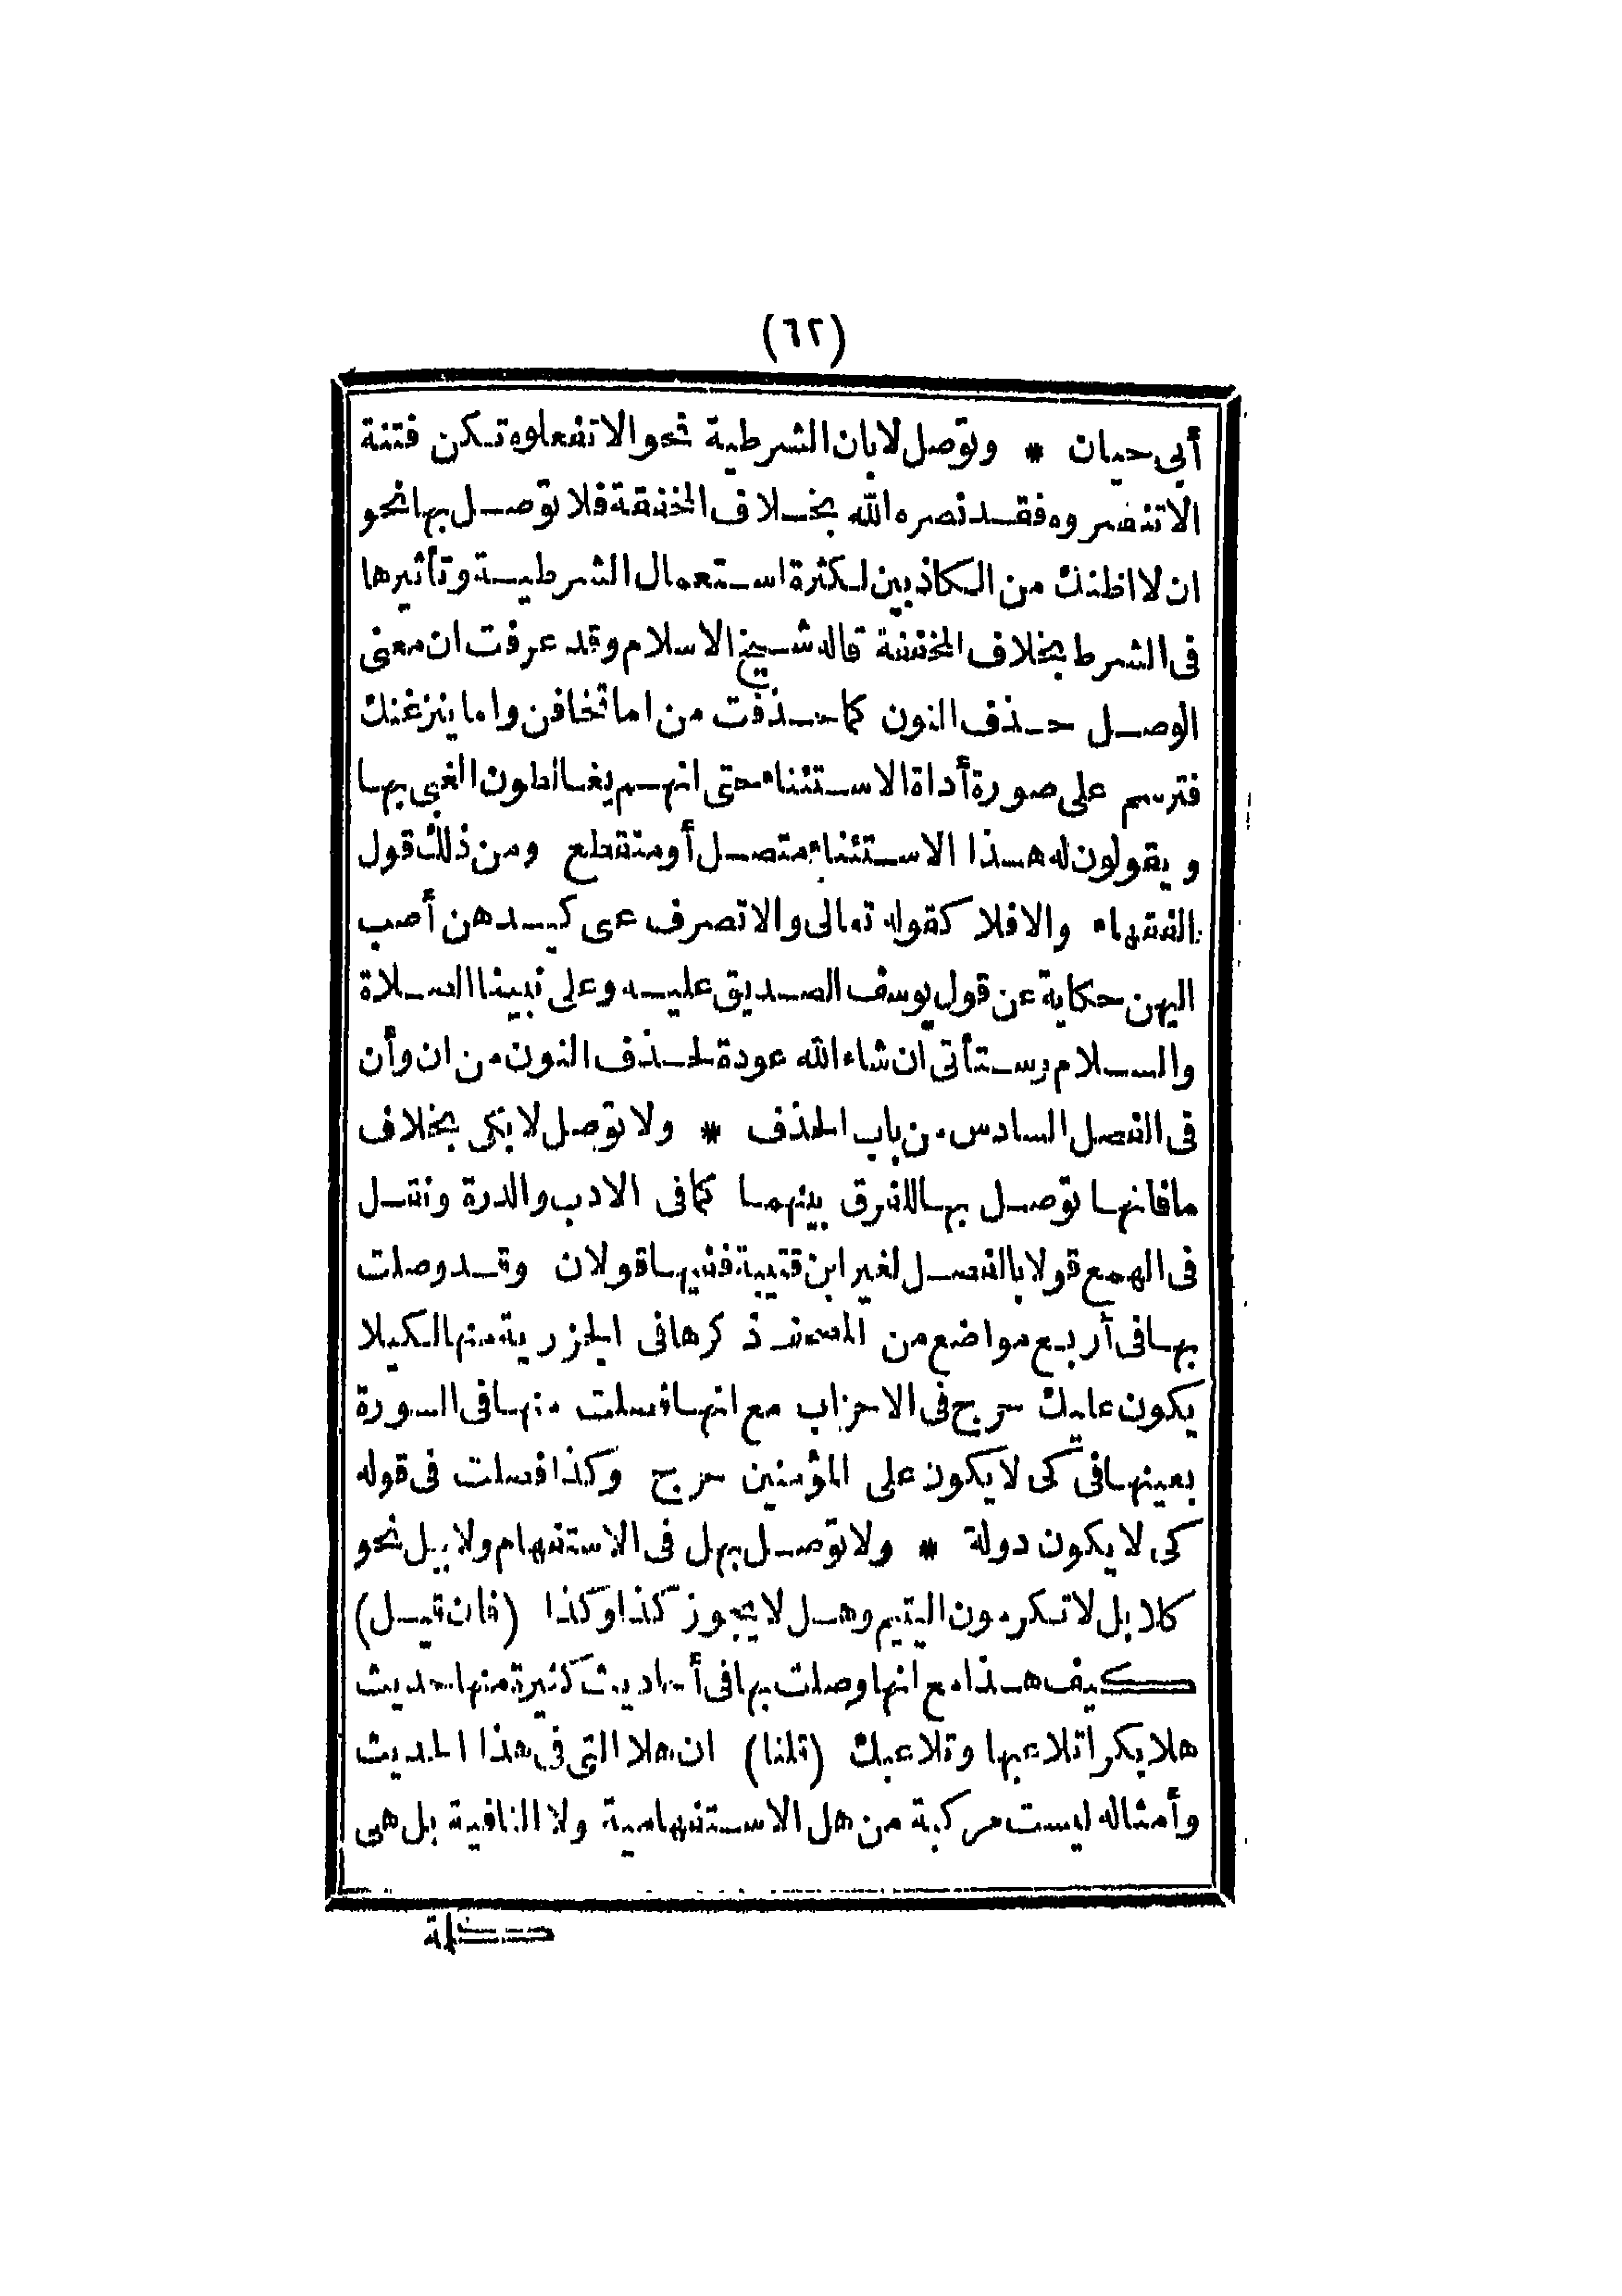 (٦٢)
أبي حيان * وتوصل لا بان الشرطية نحو الا تفعلوه تكن فتنة
الا تنصروه فقد نصره الله بخلاف المخففة فلا توصل بها نحو
ان لا اظنك من الكاذبين لكثرة استعمال الشرطية وتأثيرها
فى الشرط بخلاف المخففة قاله شيخ الاسلام وقد عرفت ان معنى
الوصل حذف النون كما حذفت من اما تخافن واما ينزغنك
فترسم على صورة أداة الاستثناء حتى انهم يغالطون الغبي بها
ويقولون له هذا الاستثناء متصل أو منقطع ومن ذلك قول
الفقهاء والا فلا كقوله تعالى والا تصرف عنى كيدهن أصب
اليهن حكاية عن قول يوسف الصديق عليه وعلى نبينا الصلاة
والسلام وستأتى ان شاء الله عودة لحذف النون من ان وأن
فى الفصل السادس من باب الحذف * ولا توصل لا بكى بخلاف
ما فانها توصل بها للفرق بينهما كما فى الادب والدرة ونقل
فى الهمع قولا بالفصل لغير ابن قتيبة ففيها قولان وقد وصلت
بها فى أربع مواضع من المصحف ذكرها فى الجزرية منها لكيلا
يكون عليك حرج فى الاحزاب مع انها فصلت منها فى السورة
بعينها فى كى لا يكون على المؤمنين حرج وكذا فصلت فى قوله
كى لا يكون دولة * ولا توصل بهل فى الاستفهام ولا ببل نحو
كلا بل لا تكرمون اليتيم وهل لا يجوز كذا وكذا (فان قيل)
كيف هذا مع انها وصلت بها فى أحاديث كثيرة منها حديث
هلا بكرا تلاعبها وتلاعبك (قلنا) ان هلا التى فى هذا الحديث
وأمثاله ليست مركبة من هل الاستفهامية ولا النافية بل هى
كلة